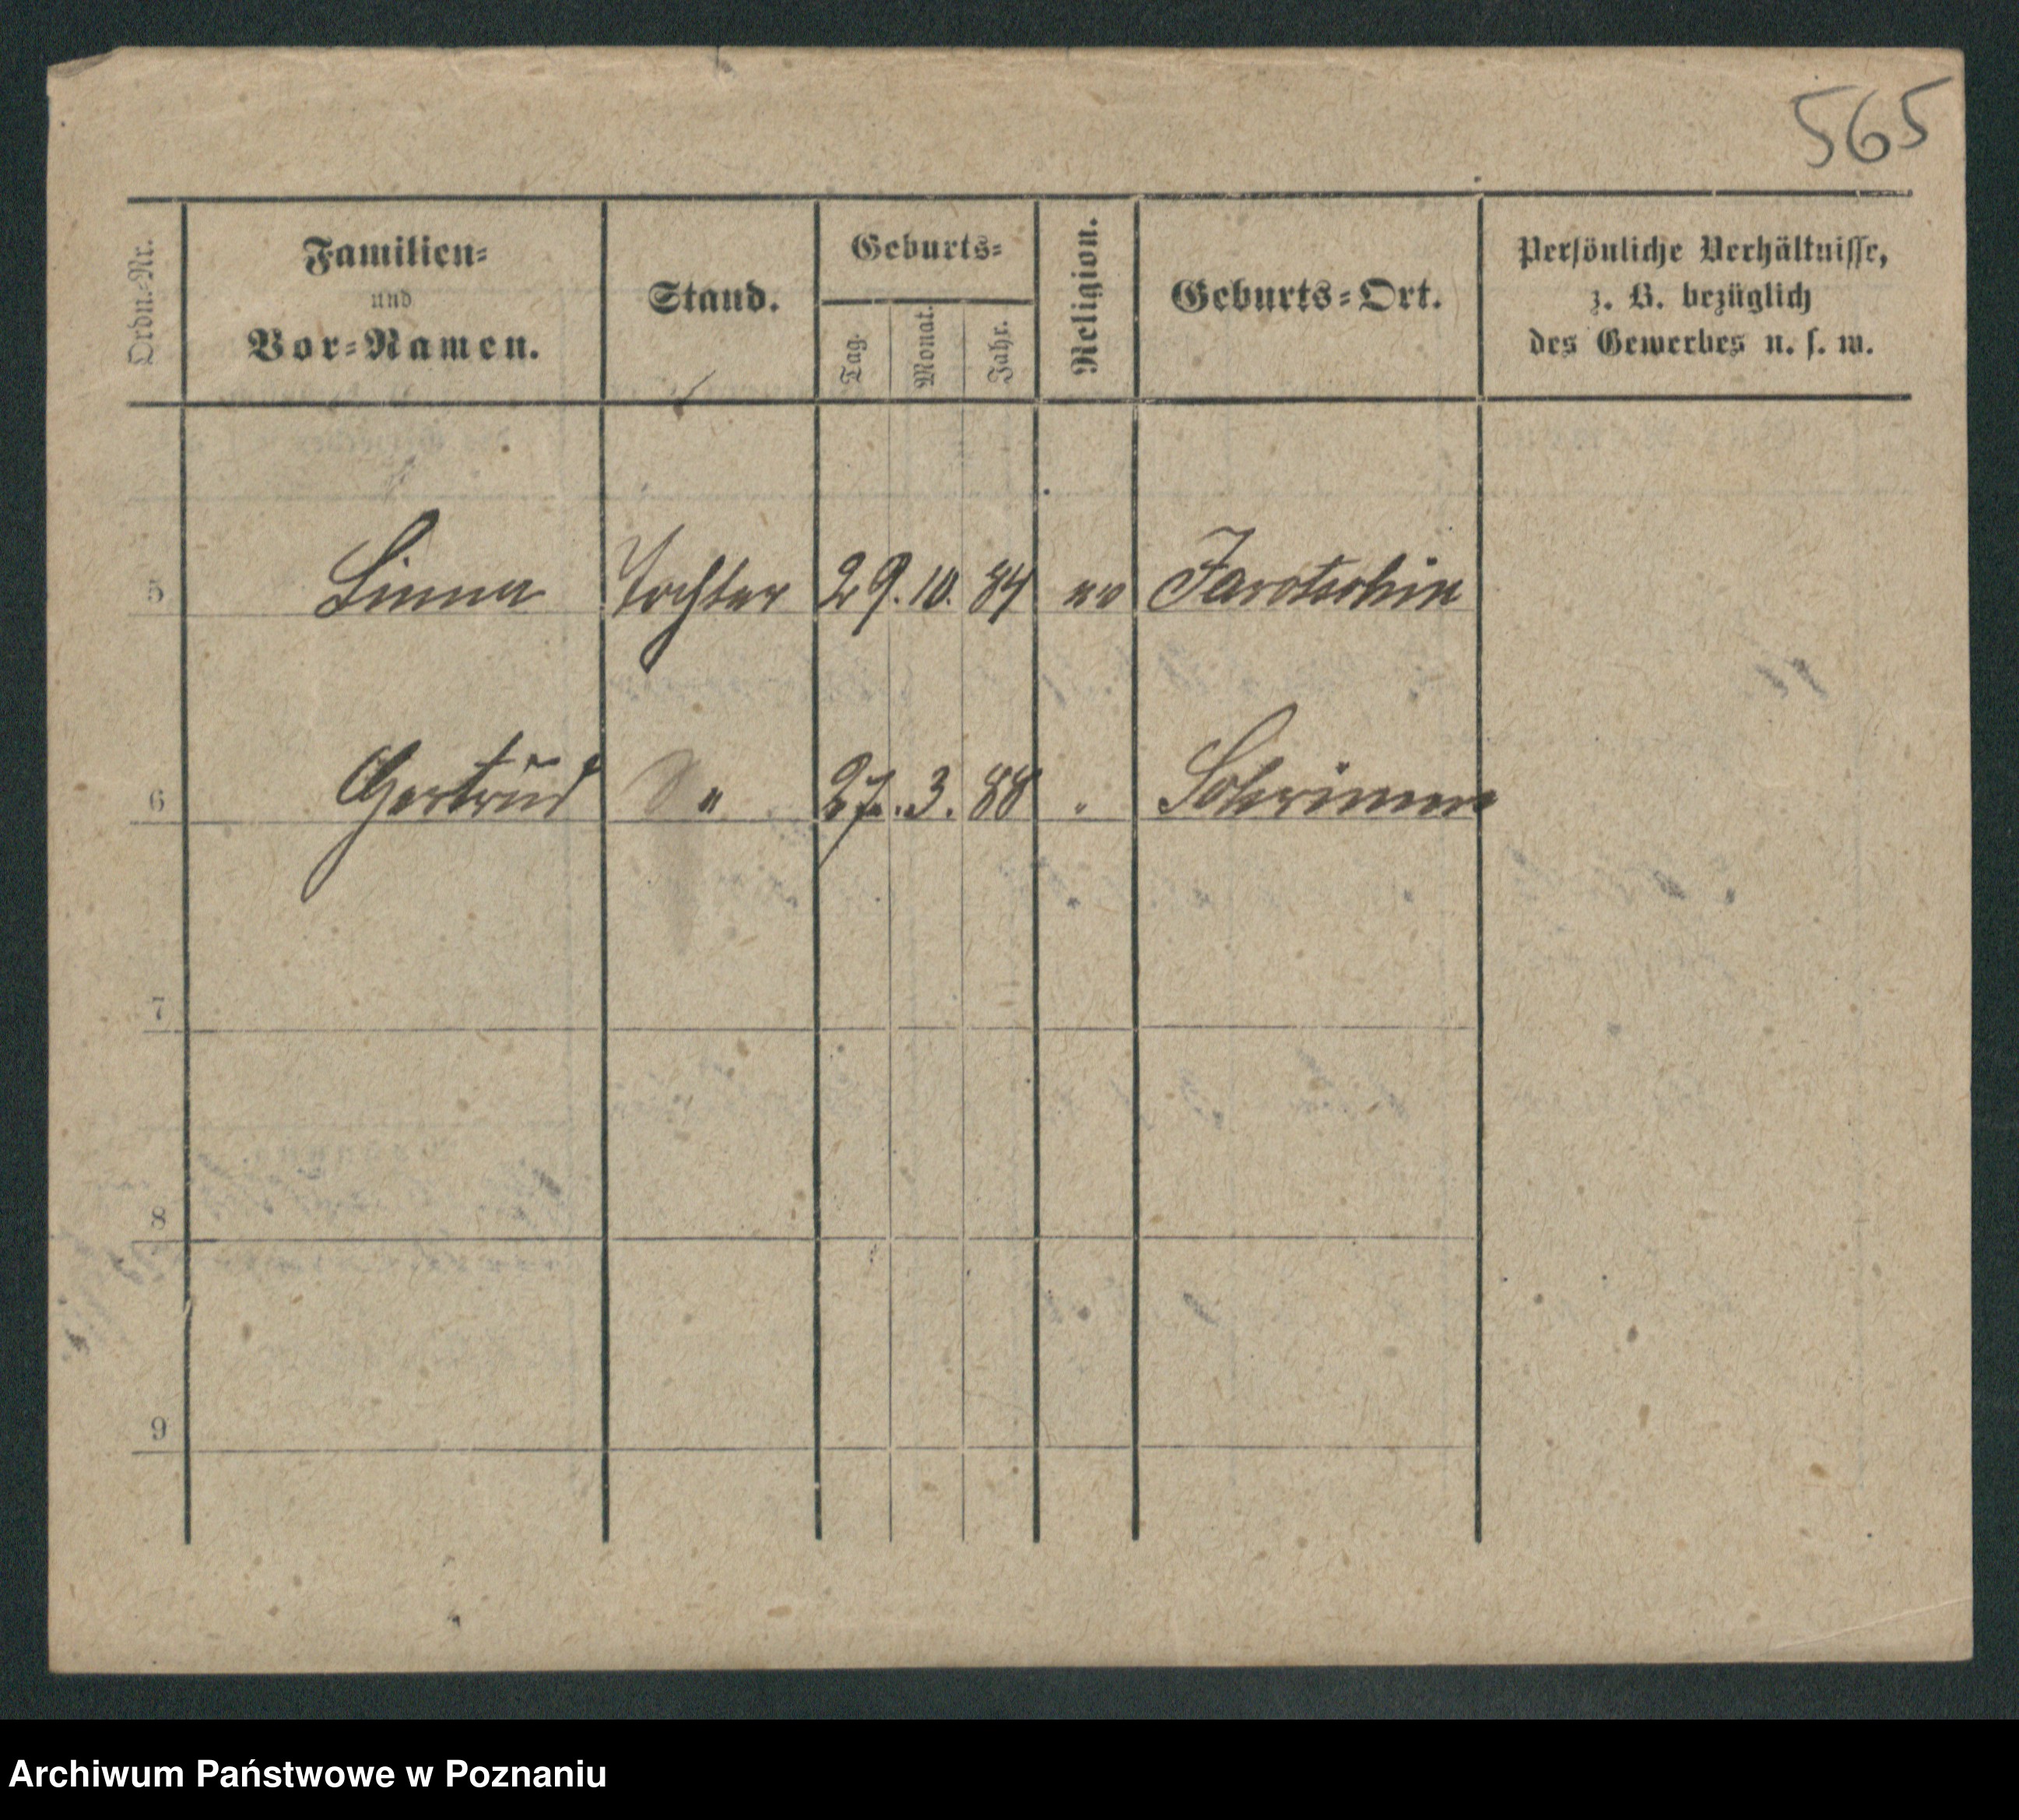 565
Ordn.-Nr.
Familien-
und
Vor-Namen.
Stand.
Geburts-
Tag.
Monat.
Jahr.
Religion.
Geburts-Ort.
Persönliche Verhältnisse,
z. B. bezüglich
des Gewerbes u. s. w.
5 Tochter 29. 10. 84 Jarotschin
6 Gertrud " 27. 3. 88 " Schrimm
7
8
9
Archiwum Państwowe w Poznaniu